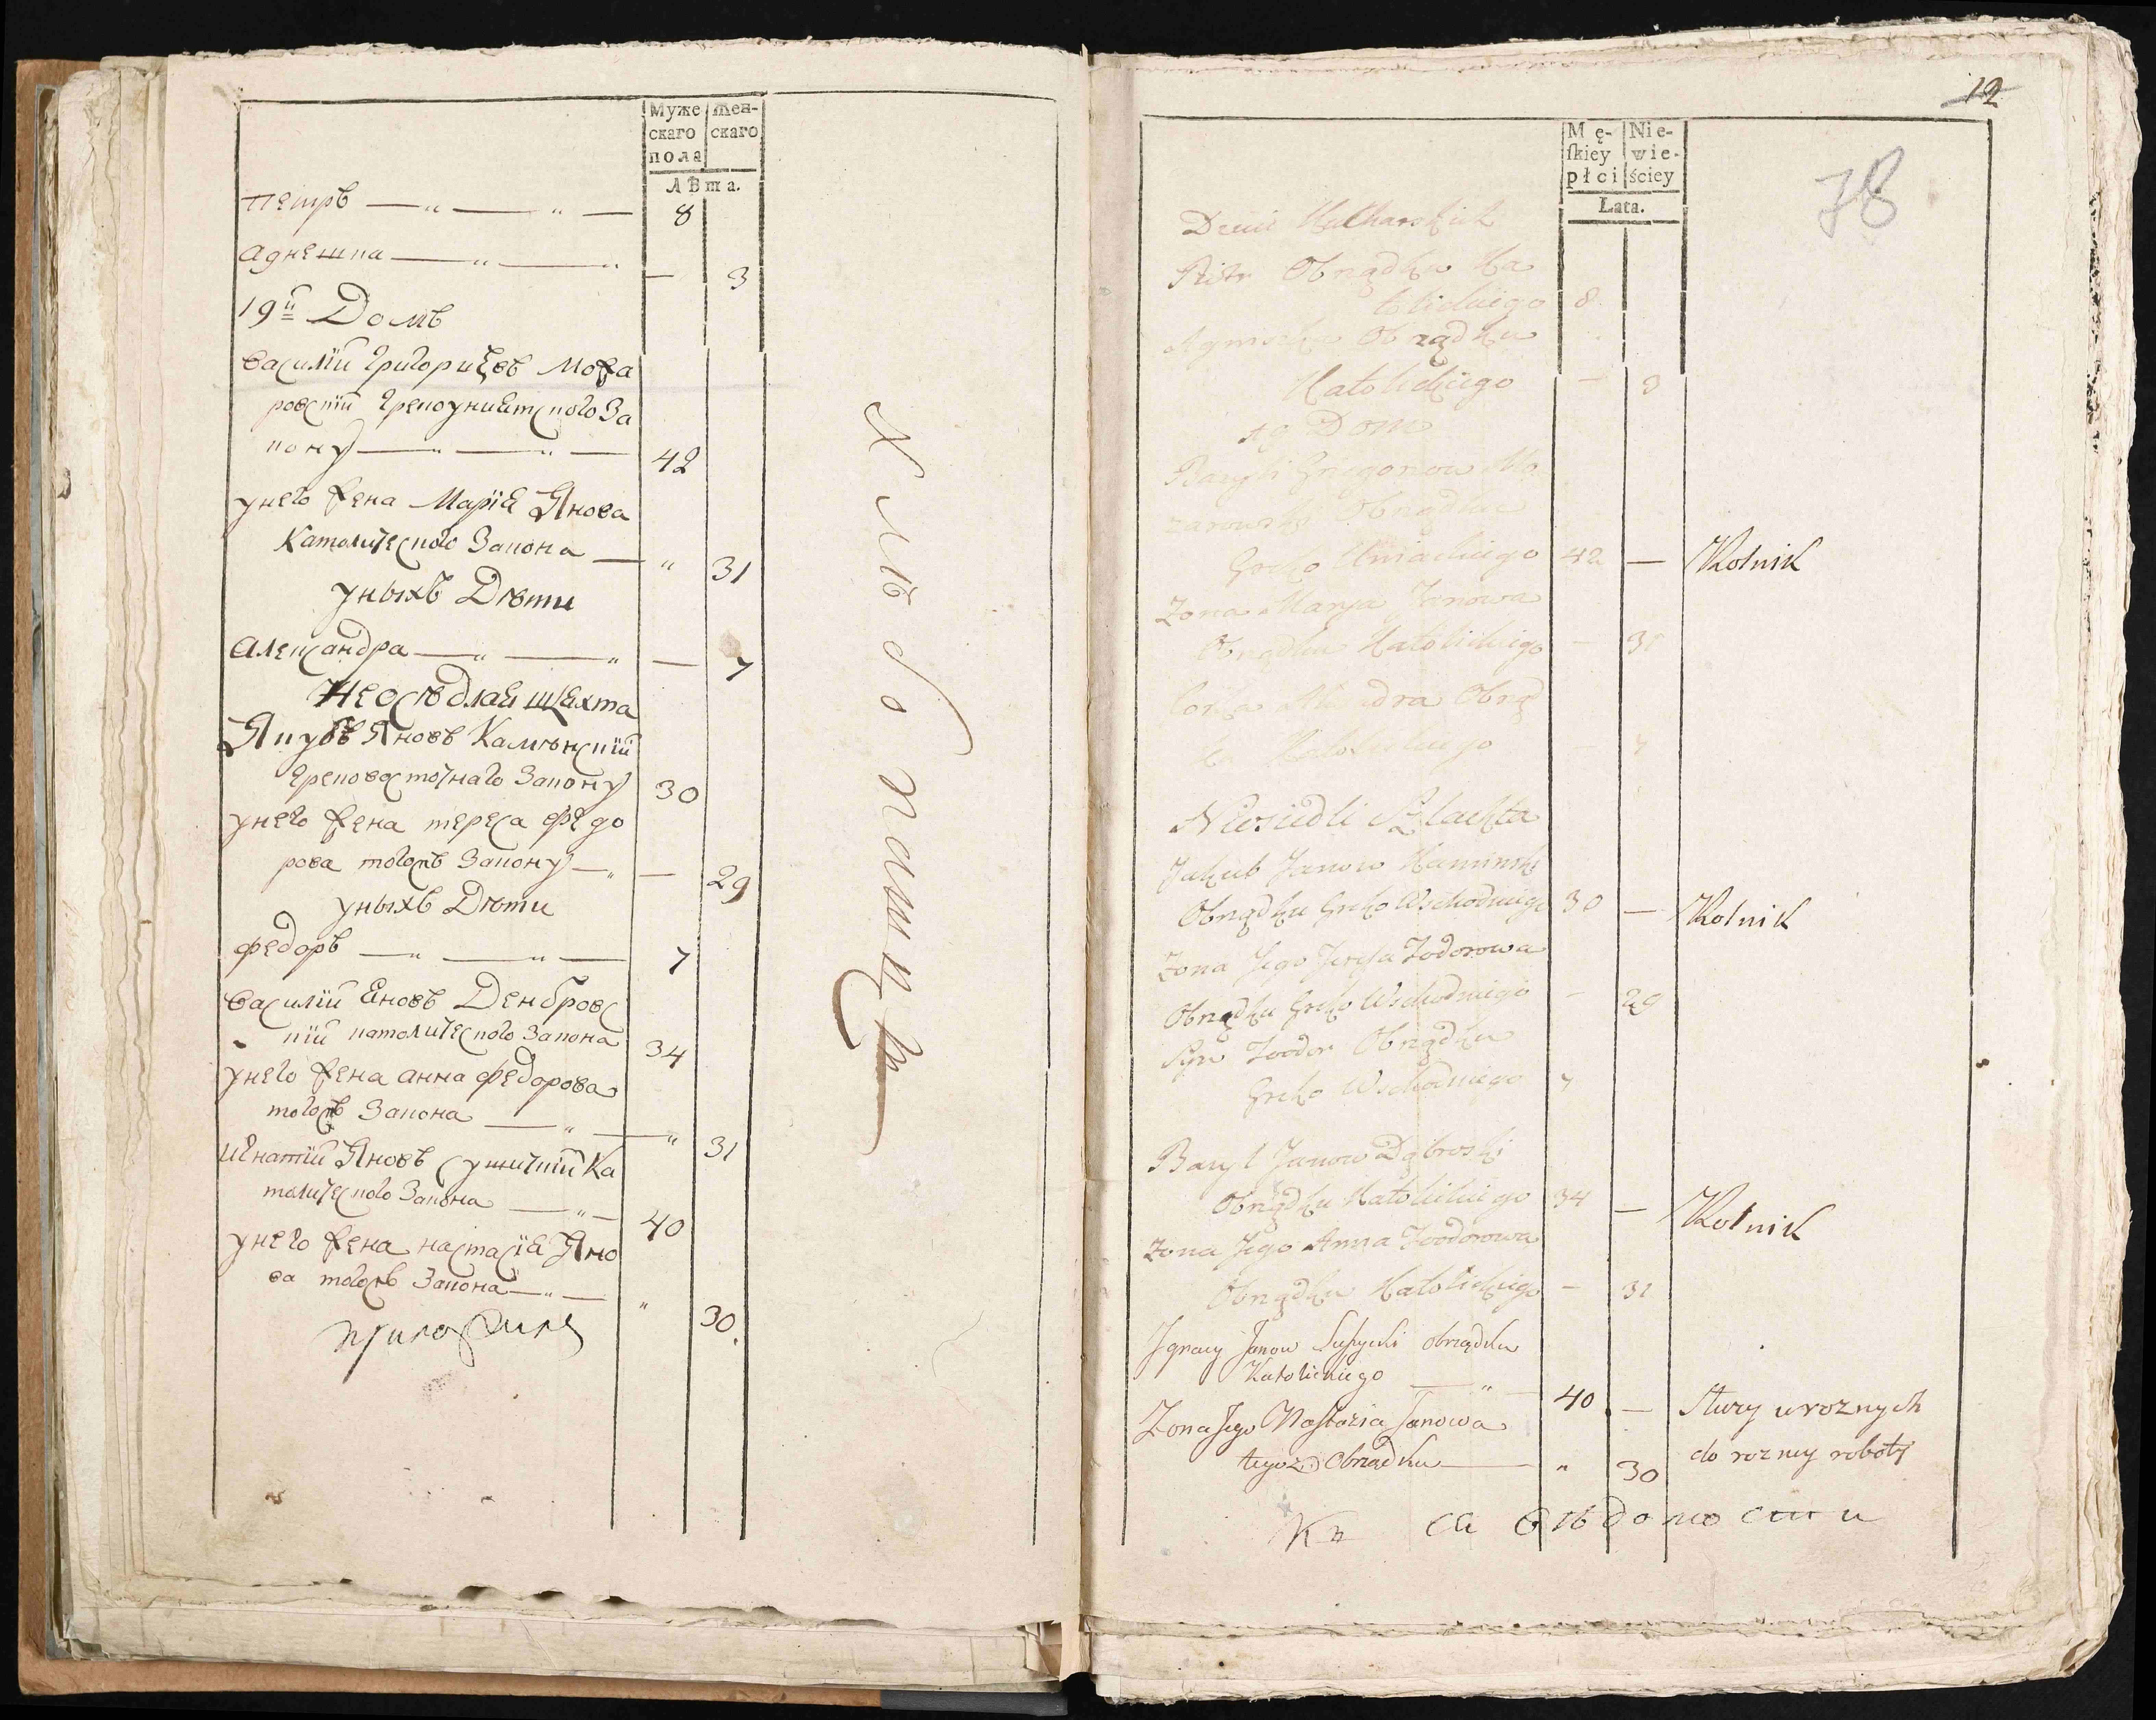 Муже
скаго
пола
Жен-
скаго
Лѣта.
Петръ — „ — „ — 8
Агнешка — „ — „ — 3
19й Домъ
Василий Григориевъ Моза
ровский Грекоуниятского За
кону — „ — „ — 42
унего жена Мариа Янова
Католического Закона — „ 31
Уныхъ Дѣти
Александра — „ — „ — 7
Неосѣдлая Шляхта
Якубъ Яновъ Камѣнский
Грековосточнаго Закону 30
унего жена Тереса Федо
рова тогожъ Закону — „ — 29
уныхъ Дѣти
Федоръ — „ — „ — 7
Василий Яновъ Денбровс
кий католического Закона 34
унего жена Анна Федорова
тогожъ Закона — „ — „ 31
Игнатий Яновъ Сушицкий Ка
толического Закона — „ — 40
унего жена Настасиа Яно
ва тогожъ Закона — „ — „ 30.
Хлѣбопашцы
12
78
Mę-
ſkiey
płci
Nie-
wie-
ściey
Lata.
Piotr Obrządku Ka
tolickiego 8
Obrządku
Katolickiego — 3
19 Dom
Bazyli Gregorow Mo
zarowski Obrządku
Greko Uniackiego 42 — Rolnik
Zona Marya Janowa
Obrządku Katolickiego — 31
Corka Obrząd
ku Katolickiego — 7
Nieosiedli Szlachta
Jakub Janow Kaminski
Obrządku Greko Wschodniego 30 — Rolnik
Zona Jego Teresa Fodorowa
Obrządku Greko Wschodniego — 29
Syn Foodor Obrządku
Greko Wschodniego 7
Bazyl Janow Dąbroski
Obrządku Katolickiego 34 — Rolnik
Zona Jego Anna Foodorowa
Obrządku Katolickiego — 31
Ignacy Janow Suszycki obrządku
Katolickiego — „ — 40 — Służy u roznych
Zona Jego Nastazia Janowa do rozney roboty
tegoz Obrządku — „ 30
Къ сей вѣдомости